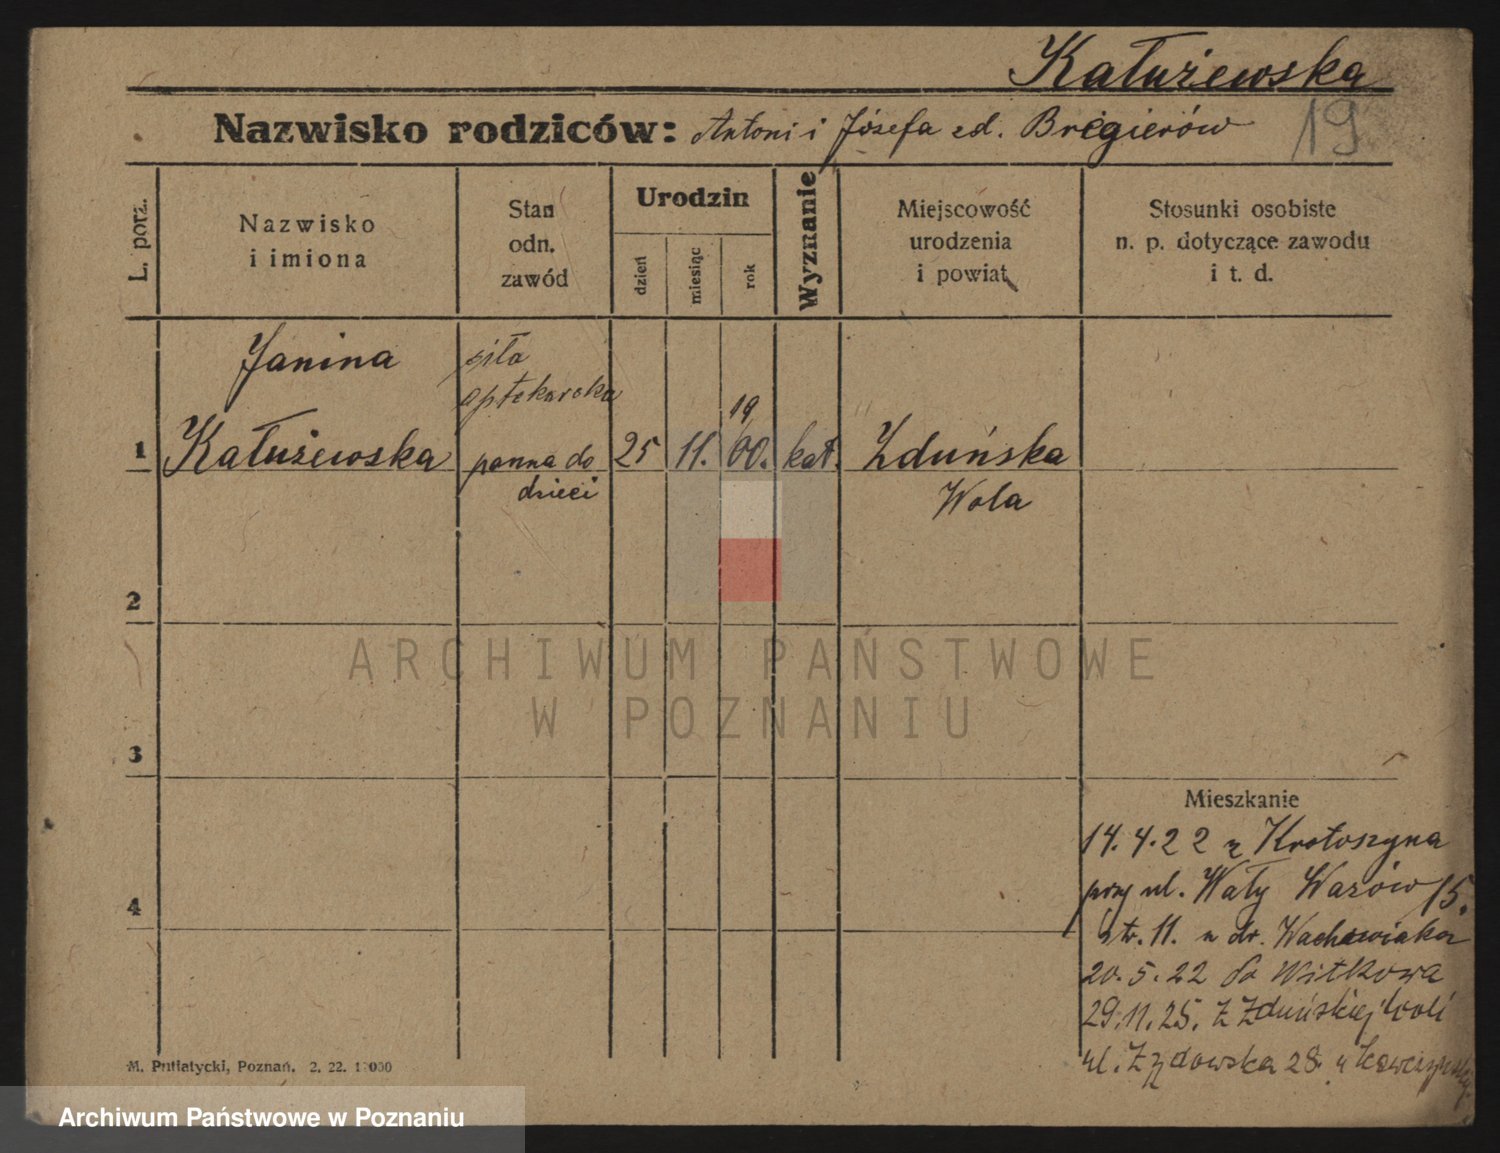 Kałużewska
Nazwisko rodziców: Antoni i Józefa zd. Bregierów
19
L. porz.
Nazwisko
i imiona
Stan
odn.
zawód
Urodzin
dzień
miesiąc
rok
Wyznanie
Miejscowość
urodzenia
i powiat
Stosunki osobiste
n. p. dotyczące zawodu
i t. d.
Janina
siła
aptekarska
19
1 Kałużewska panna do 25 11. 00. kat. Zduńska
dzieci Wola
2
ARCHIWUM PAŃSTWOWE
W POZNANIU
3
Mieszkanie
14.4.22 z Krotoszyna
przy ul. Wały Wazów 15.
str. 11. u dr. Wachowiaka
4
20.5.22 do Witkowa
29.11.25. z Zduńskiej Woli
ul. Żydowska 28 u
M. Putiatycki, Poznań. 2. 22. 1000
Archiwum Państwowe w Poznaniu